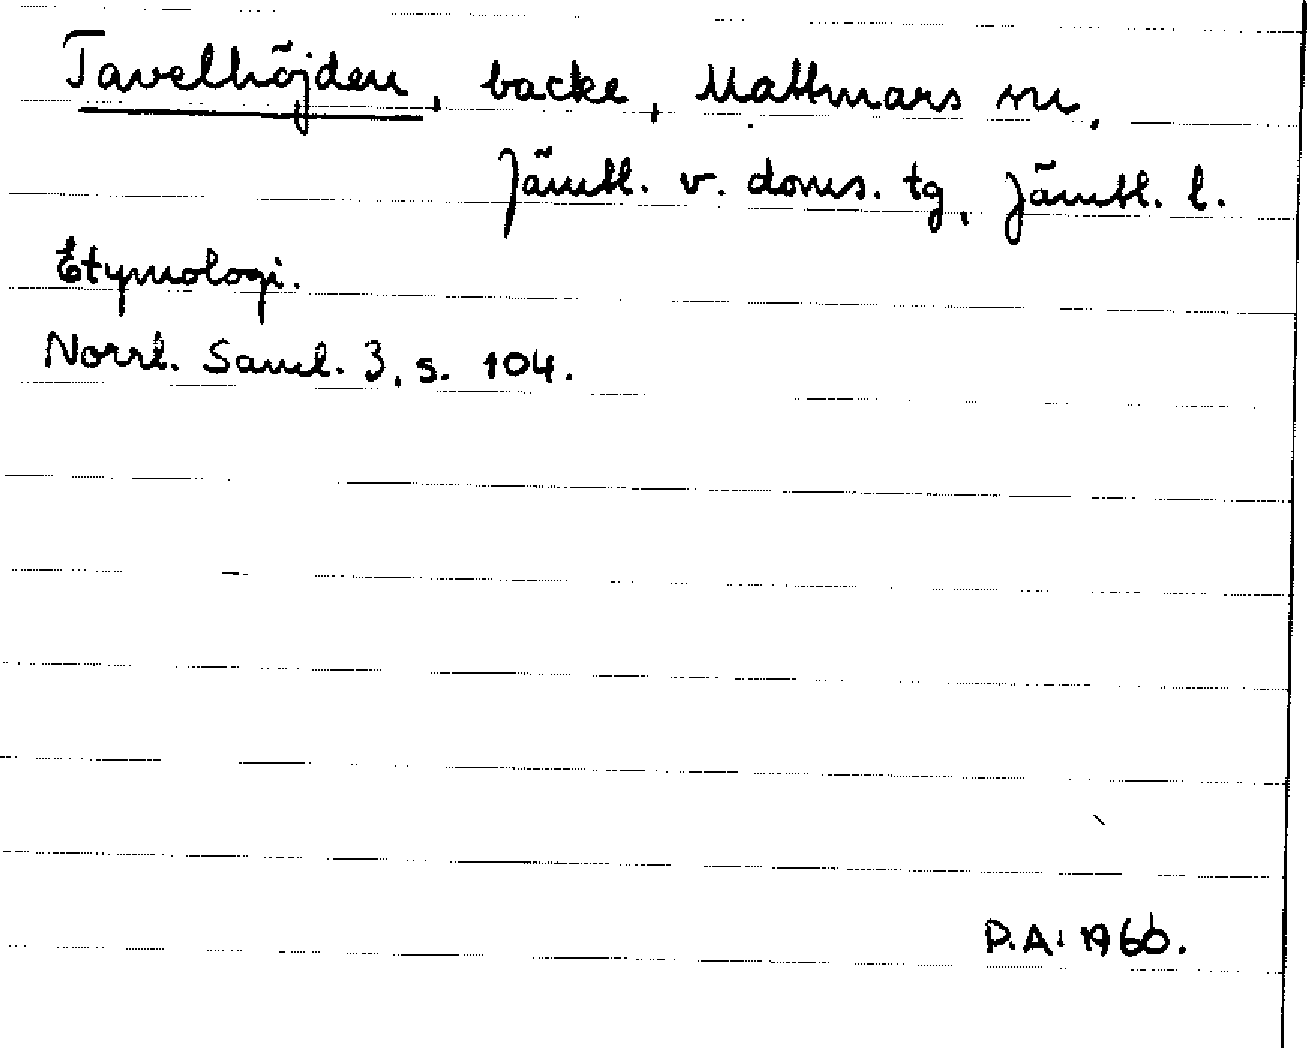 Tavelhöjden, backe, Mattmars sn,
Jämtl. v. doms. tg, Jämtl. l.
Etymologi.
Norrl. Saml. 3, s. 104.
P.A. 1966.